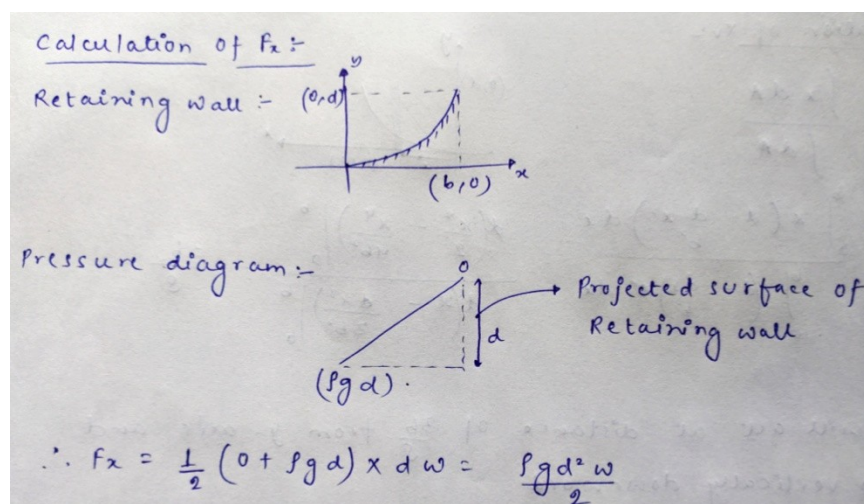 Calculation of Fx :-
Retaining wall :-
y
(0,d)
(b,0)
x
Pressure diagram :-
0
d
Projected surface of
Retaining wall
(ρgd).
∴ Fx = 1/2 (0 + ρgd) × d w = ρgd²w/2